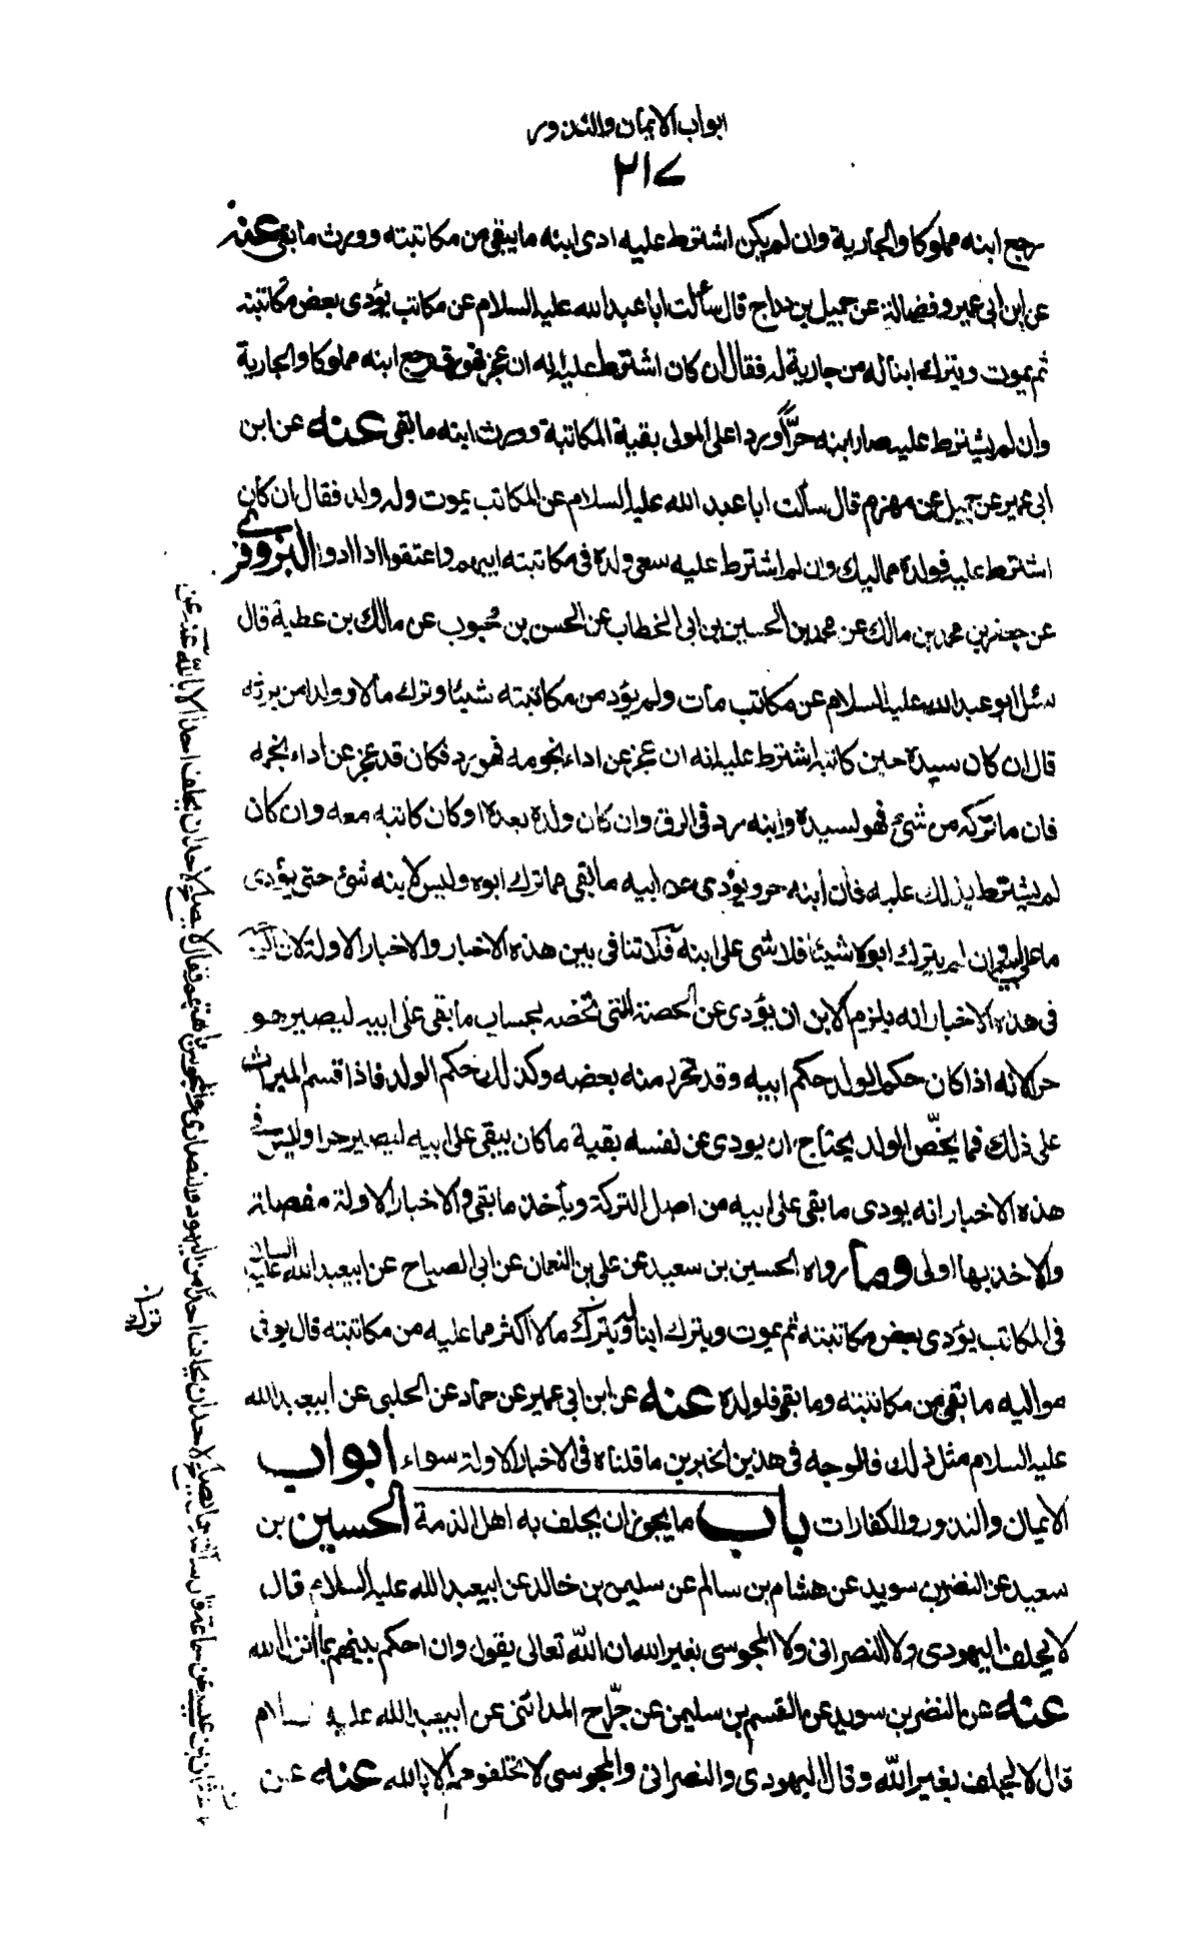 ابواب الايمان والنذور
٢١٧
رجع ابنه مملوكا والجارية وان لم يكن اشترط عليه ادى ابنه ما يبقى من مكاتبته وورث ما بقى عنه
عن ابن ابى عمير وفضالة عن جميل بن دراج قال سألت ابا عبد الله عليه السلام عن مكاتب يؤدى بعض مكاتبته
ثم يموت ويترك ابنا له من جارية له فقال ان كان اشترط عليه انه ان عجز فهو رق رجع ابنه مملوكا والجارية
وان لم يشترط عليه صار ابنه حرّا ورد على المولى بقية المكاتبة وورث ابنه ما بقى عنه عن ابن
ابى عمير عن جميل عن مهزم قال سألت ابا عبد الله عليه السلام عن المكاتب يموت وله ولد فقال ان كان
اشترط عليه فولده مماليك وان لم اشترط عليه سعى ولده فى مكاتبته ابيهم واعتقوا اذا ادوا البزوفرى
عن جعفر بن محمد بن مالك عن محمد بن الحسين بن ابى الخطاب عن الحسن بن محبوب عن مالك بن عطية قال
سئل ابو عبد الله عليه السلام عن مكاتب مات ولم يؤد من مكاتبته شيئا وترك مالا وولدا من يرثه
قال ان كان سيده حين كاتبه اشترط عليه انه ان عجز عن اداء نجومه فهو رد فكان قد عجز عن اداء نجمه
فان ما تركه من شئ فهو لسيده وابنه رد فى الرق وان كان ولده بعده او كان كاتبه معه وان كان
لم يشترط بذلك عليه فان ابنه حر ويؤدى عن ابيه ما بقى مما ترك ابوه وليس لابنه شئ حتى يؤدى
ما عليه وان لم يترك ابوه شيئا فلا شى على ابنه فلا تنافى بين هذه الاخبار والاخبار الاولة لان الذى
فى هذه الاخبار انه يلزم الابن ان يؤدى عن الحصة التى تخصه بحساب ما بقى على ابيه ليصير هو
حر لانه اذا كان حكم الولد حكم ابيه وقد تحرر منه بعضه وكذلك حكم الولد فاذا قسم الميراث
على ذلك فما يخصّ الولد يحتاج ان يودى عن نفسه بقية ما كان يبقى على ابيه ليصير حرا وليس فى
هذه الاخبار انه يودى ما بقى على ابيه من اصل التركة ويأخذ ما بقى والاخبار الاولة مفصلة
والاخذ بها اولى وما رواه الحسين بن سعيد عن على بن النعمان عن ابى الصباح عن ابيعبد الله عليه السلام
فى المكاتب يؤدى بعض مكاتبته ثم يموت ويترك ابنا ويترك مالا اكثر مما عليه من مكاتبته قال يوفى
مواليه ما بقى من مكاتبته وما بقى فلولده عنه عن ابن ابى عمير عن حماد عن الحلبى عن ابيعبد الله
عليه السلام مثل ذلك فالوجه فى هذين الخبرين ما قلناه فى الاخبار الاولة سواء ابواب
الايمان والنذور والكفارات باب ما يجوز ان يحلف به اهل الذمة الحسين بن
سعيد عن النضر بن سويد عن هشام بن سالم عن سليمن بن خالد عن ابيعبد الله عليه السلام قال
لا يحلف اليهودى ولا النصرانى ولا المجوسى بغير الله ان الله تعالى يقول وان احكم بينهم بما انزل الله
عنه عن النضر بن سويد عن القسم بن سليمن عن جرّاح المدائنى عن ابيعبد الله عليه سلام
قال لا يحلف بغير الله وقال اليهودى والنصرانى والمجوسى لا تحلفوهم الا بالله عنه عن